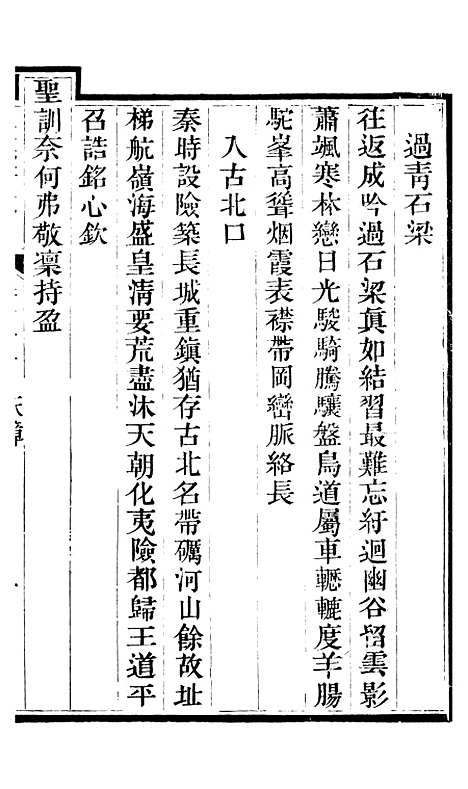 過靑石梁
往返成吟過石梁眞如結習最難忘紆迴幽谷留雲影
蕭颯寒林戀日光駿騎騰驤盤鳥道屬車轣轆度羊腸
駝峯高聳烟霞表襟帶岡巒脈絡長
入古北口
秦時設險築長城重鎭猶存古北名帶礪河山餘故址
梯航嶺海盛皇淸要荒盡沐天朝化夷險都歸王道平
召誥銘心欽
聖訓奈何弗敬凜持盈
天章